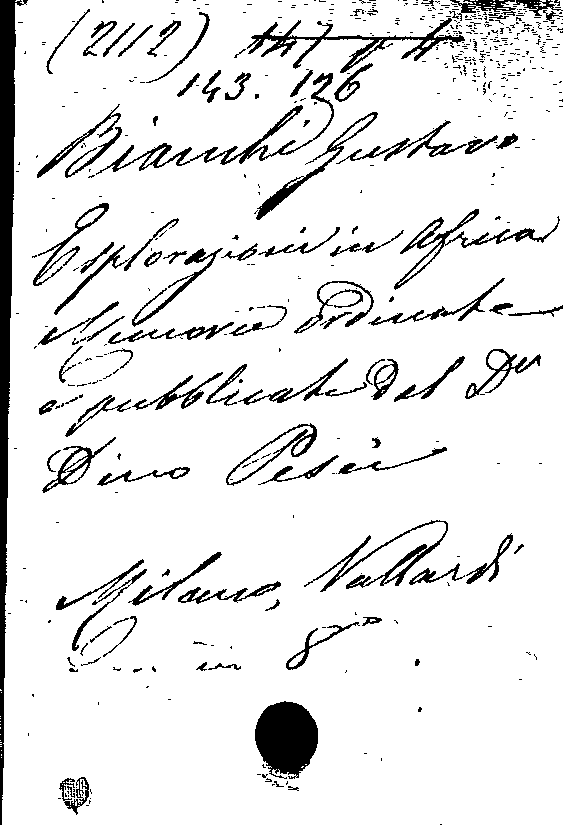 (2112) 147
143. 126
Bianchi Gustavo
Esplorazioni in Africa
Memorie ordinate
e pubblicate dal Dr
Dino Pesci
Milano, Vallardi
in 8º